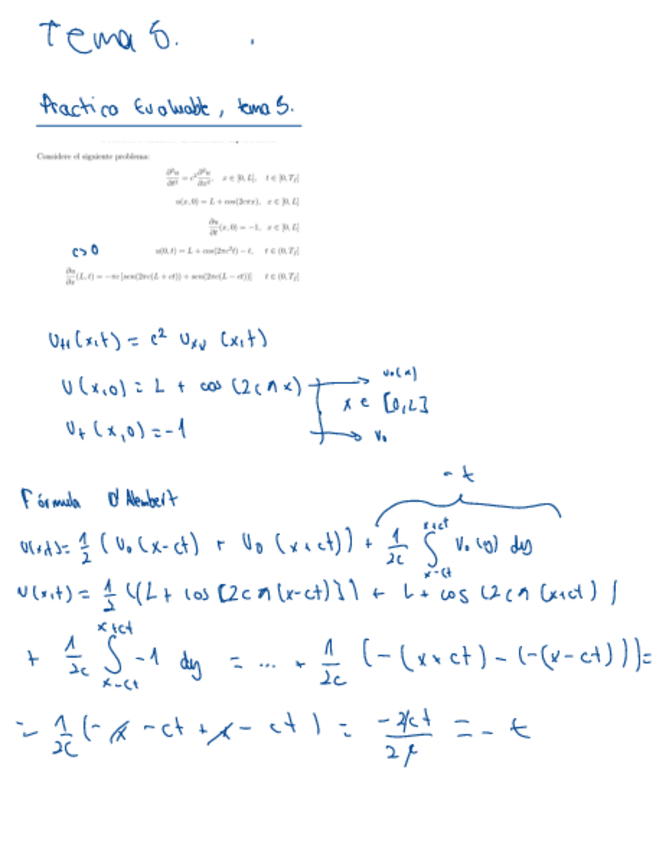 Tema 5.
Practica Evaluable, tema 5.
Considere el siguiente problema:
∂²u/∂t² = c² ∂²u/∂x², x ∈ ]0, L[, t ∈ ]0, T_f[
u(x, 0) = L + cos(2cπx), x ∈ ]0, L[
∂u/∂t (x, 0) = −1, x ∈ ]0, L[
c>0 u(0, t) = L + cos(2πc²t) − t, t ∈ (0, T_f[
∂u/∂x (L, t) = −πc [sen(2πc(L + ct)) + sen(2πc(L − ct))] t ∈ (0, T_f[
U_tt (x,t) = c² U_xx (x,t)
U(x,0) = L + cos (2cπx) → u₀(x)
x ∈ [0,L]
U_t (x,0) = -1 → v₀
- t
Fórmula D'Alembert
U(x,t) = 1/2 (U₀(x-ct) + U₀(x+ct)) + 1/2c ∫_{x-ct}^{x+ct} V₀(y) dy
U(x,t) = 1/2 ((L + cos [2cπ(x-ct)]) + L + cos (2cπ(x+ct))
+ 1/2c ∫_{x-ct}^{x+ct} -1 dy = ... + 1/2c (-(x+ct) - (-(x-ct))) =
= 1/2c (-x - ct + x - ct) = -2ct/2c = - t